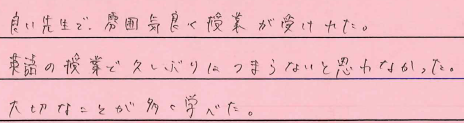 良い先生で、雰囲気良く授業が受けれた。
英語の授業で久しぶりにつまらないと思わなかった。
大切なことが多く学べた。